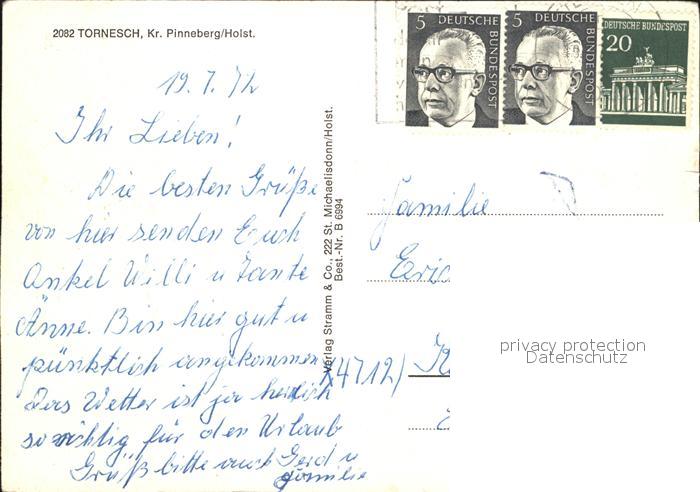 2082 TORNESCH, Kr. Pinneberg/Holst.
19.7.72
Ihr Lieben!
Die besten Grüße
von hier senden Euch
Onkel Willi u Tante
Änne. Bin hier gut u
pünktlich angekommen
Das Wetter ist ja herrlich
so richtig für den Urlaub
Grüß bitte auch Gerd u
Familie
Verlag Stramm & Co., 222 St. Michaelisdonn/Holst.
Best.-Nr. B 6994
5 DEUTSCHE BUNDESPOST
5 DEUTSCHE BUNDESPOST
DEUTSCHE BUNDESPOST
20
Familie
(4712)
privacy protection
Datenschutz